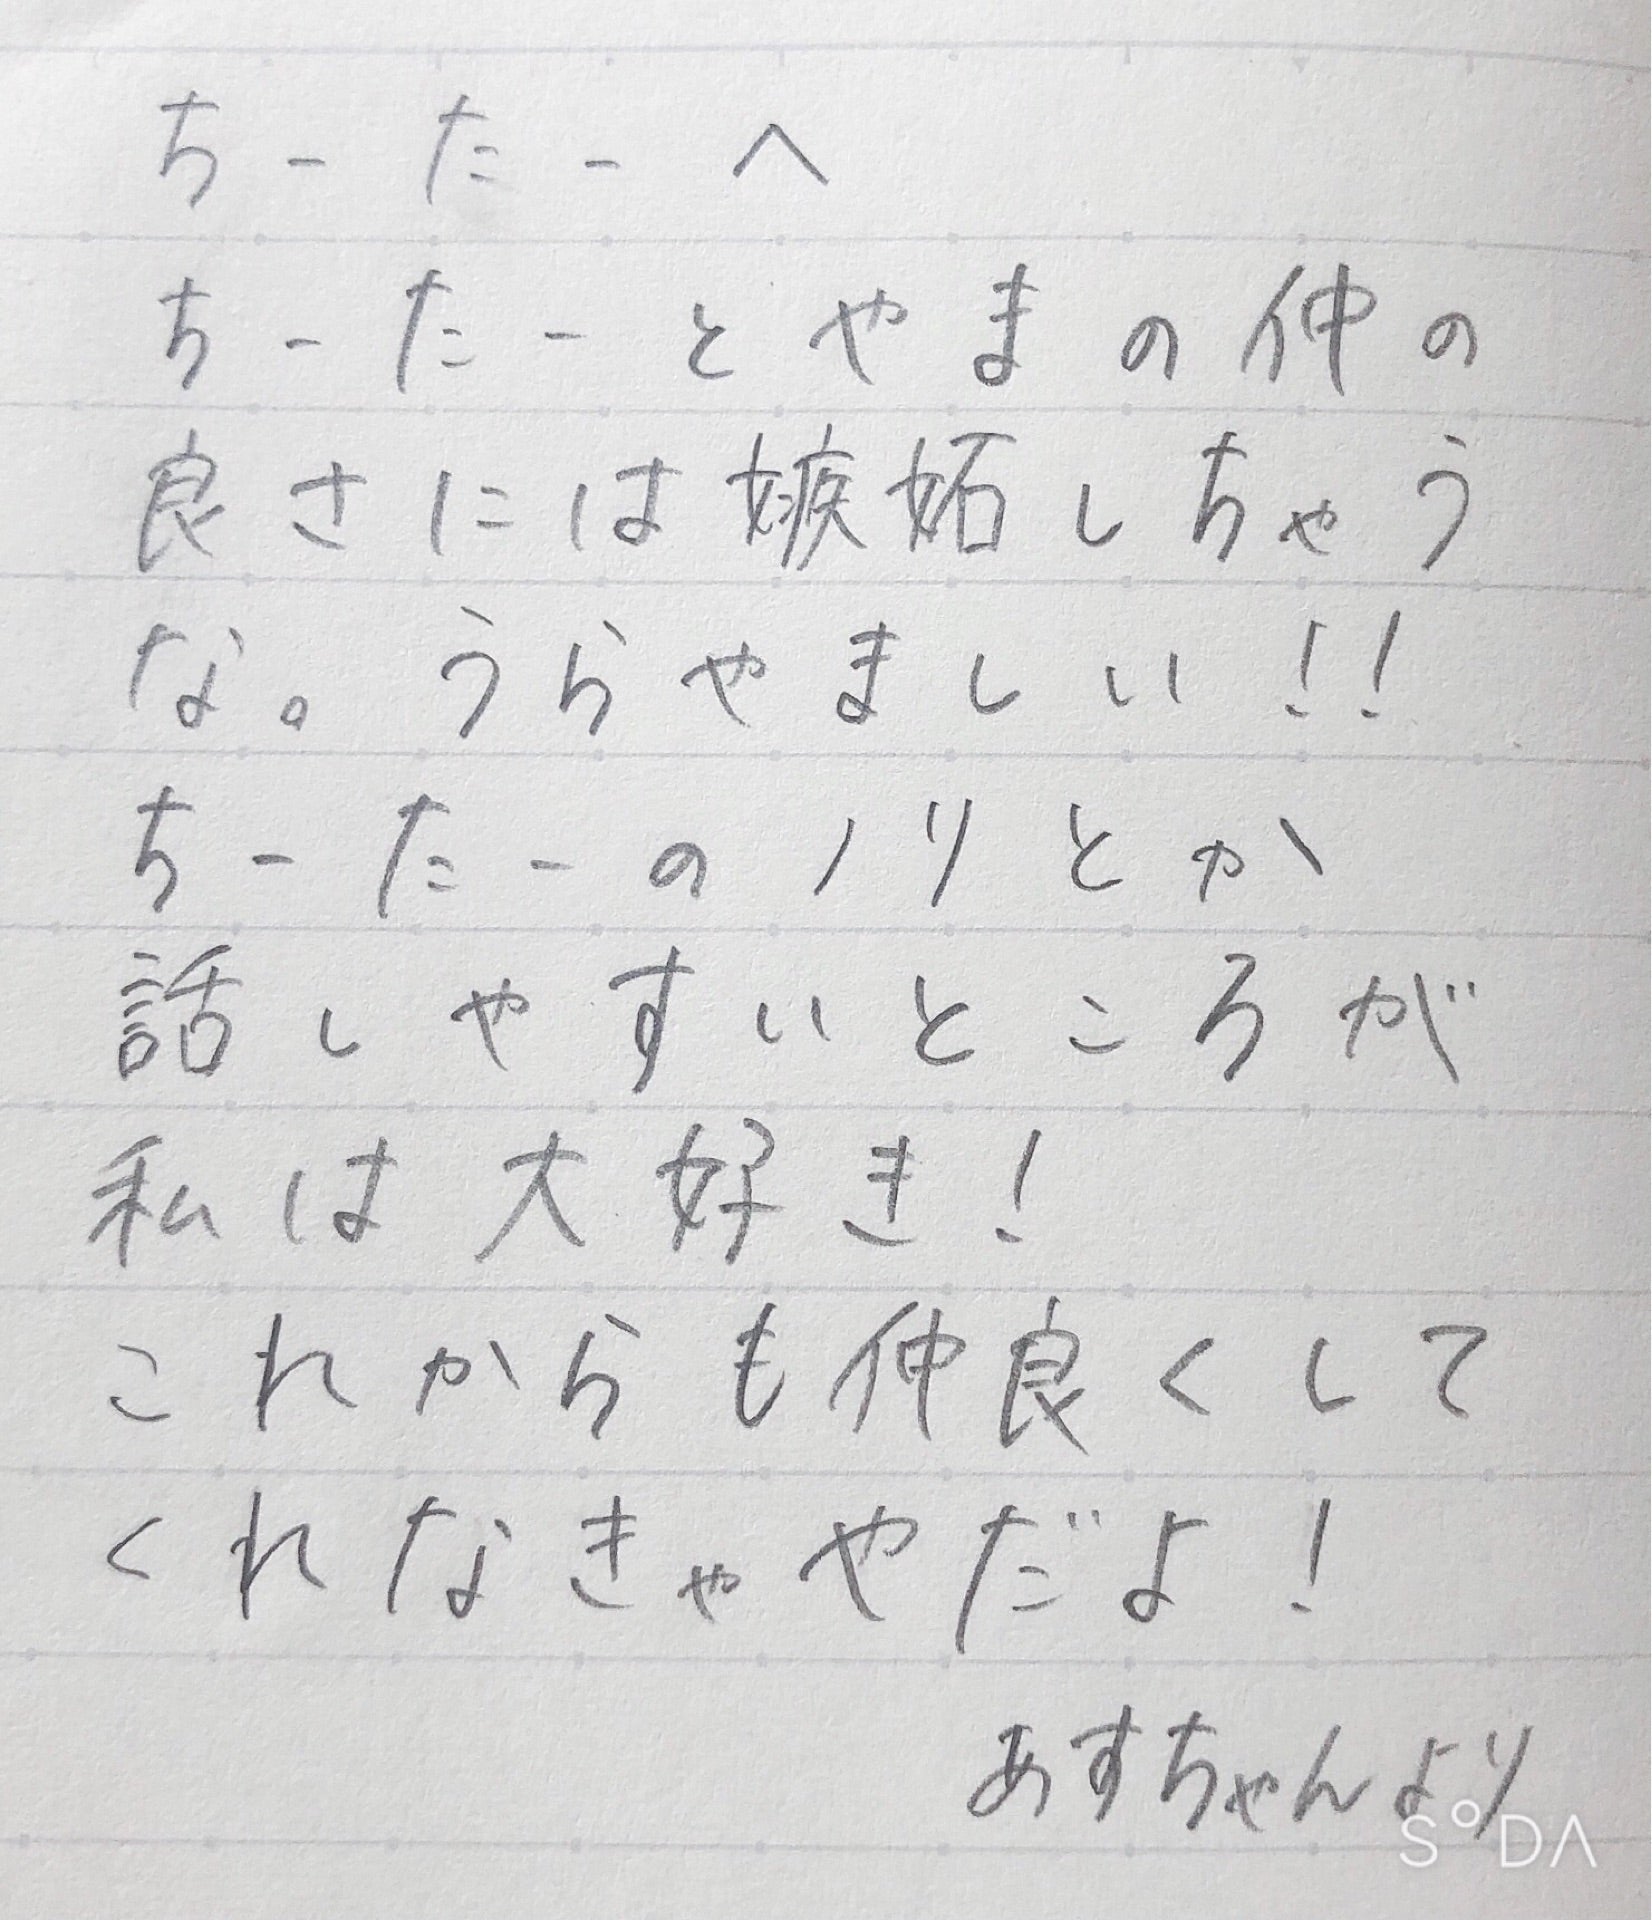 ちーたーへ
ちーたーとやまの仲の
良さには嫉妬しちゃう
な。うらやましい!!
ちーたーのノリとか
話しやすいところが
私は大好き!
これからも仲良くして
くれなきゃやだよ!
あすちゃんより
SODA